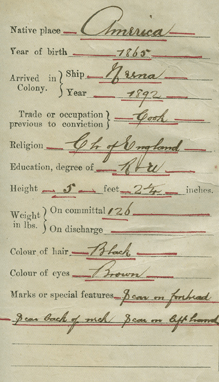 Native place America
Year of birth 1865
Arrived in Colony. } Ship Nerna
Year 1892
Trade or occupation previous to conviction } Cook
Religion Ch of England
Education, degree of R & W
Height 5 feet 2¼ inches.
Weight in lbs. } On committal 126
On discharge
Colour of hair Black
Colour of eyes Brown
Marks or special features Scar on forhead
Scar back of neck Scar on left hand